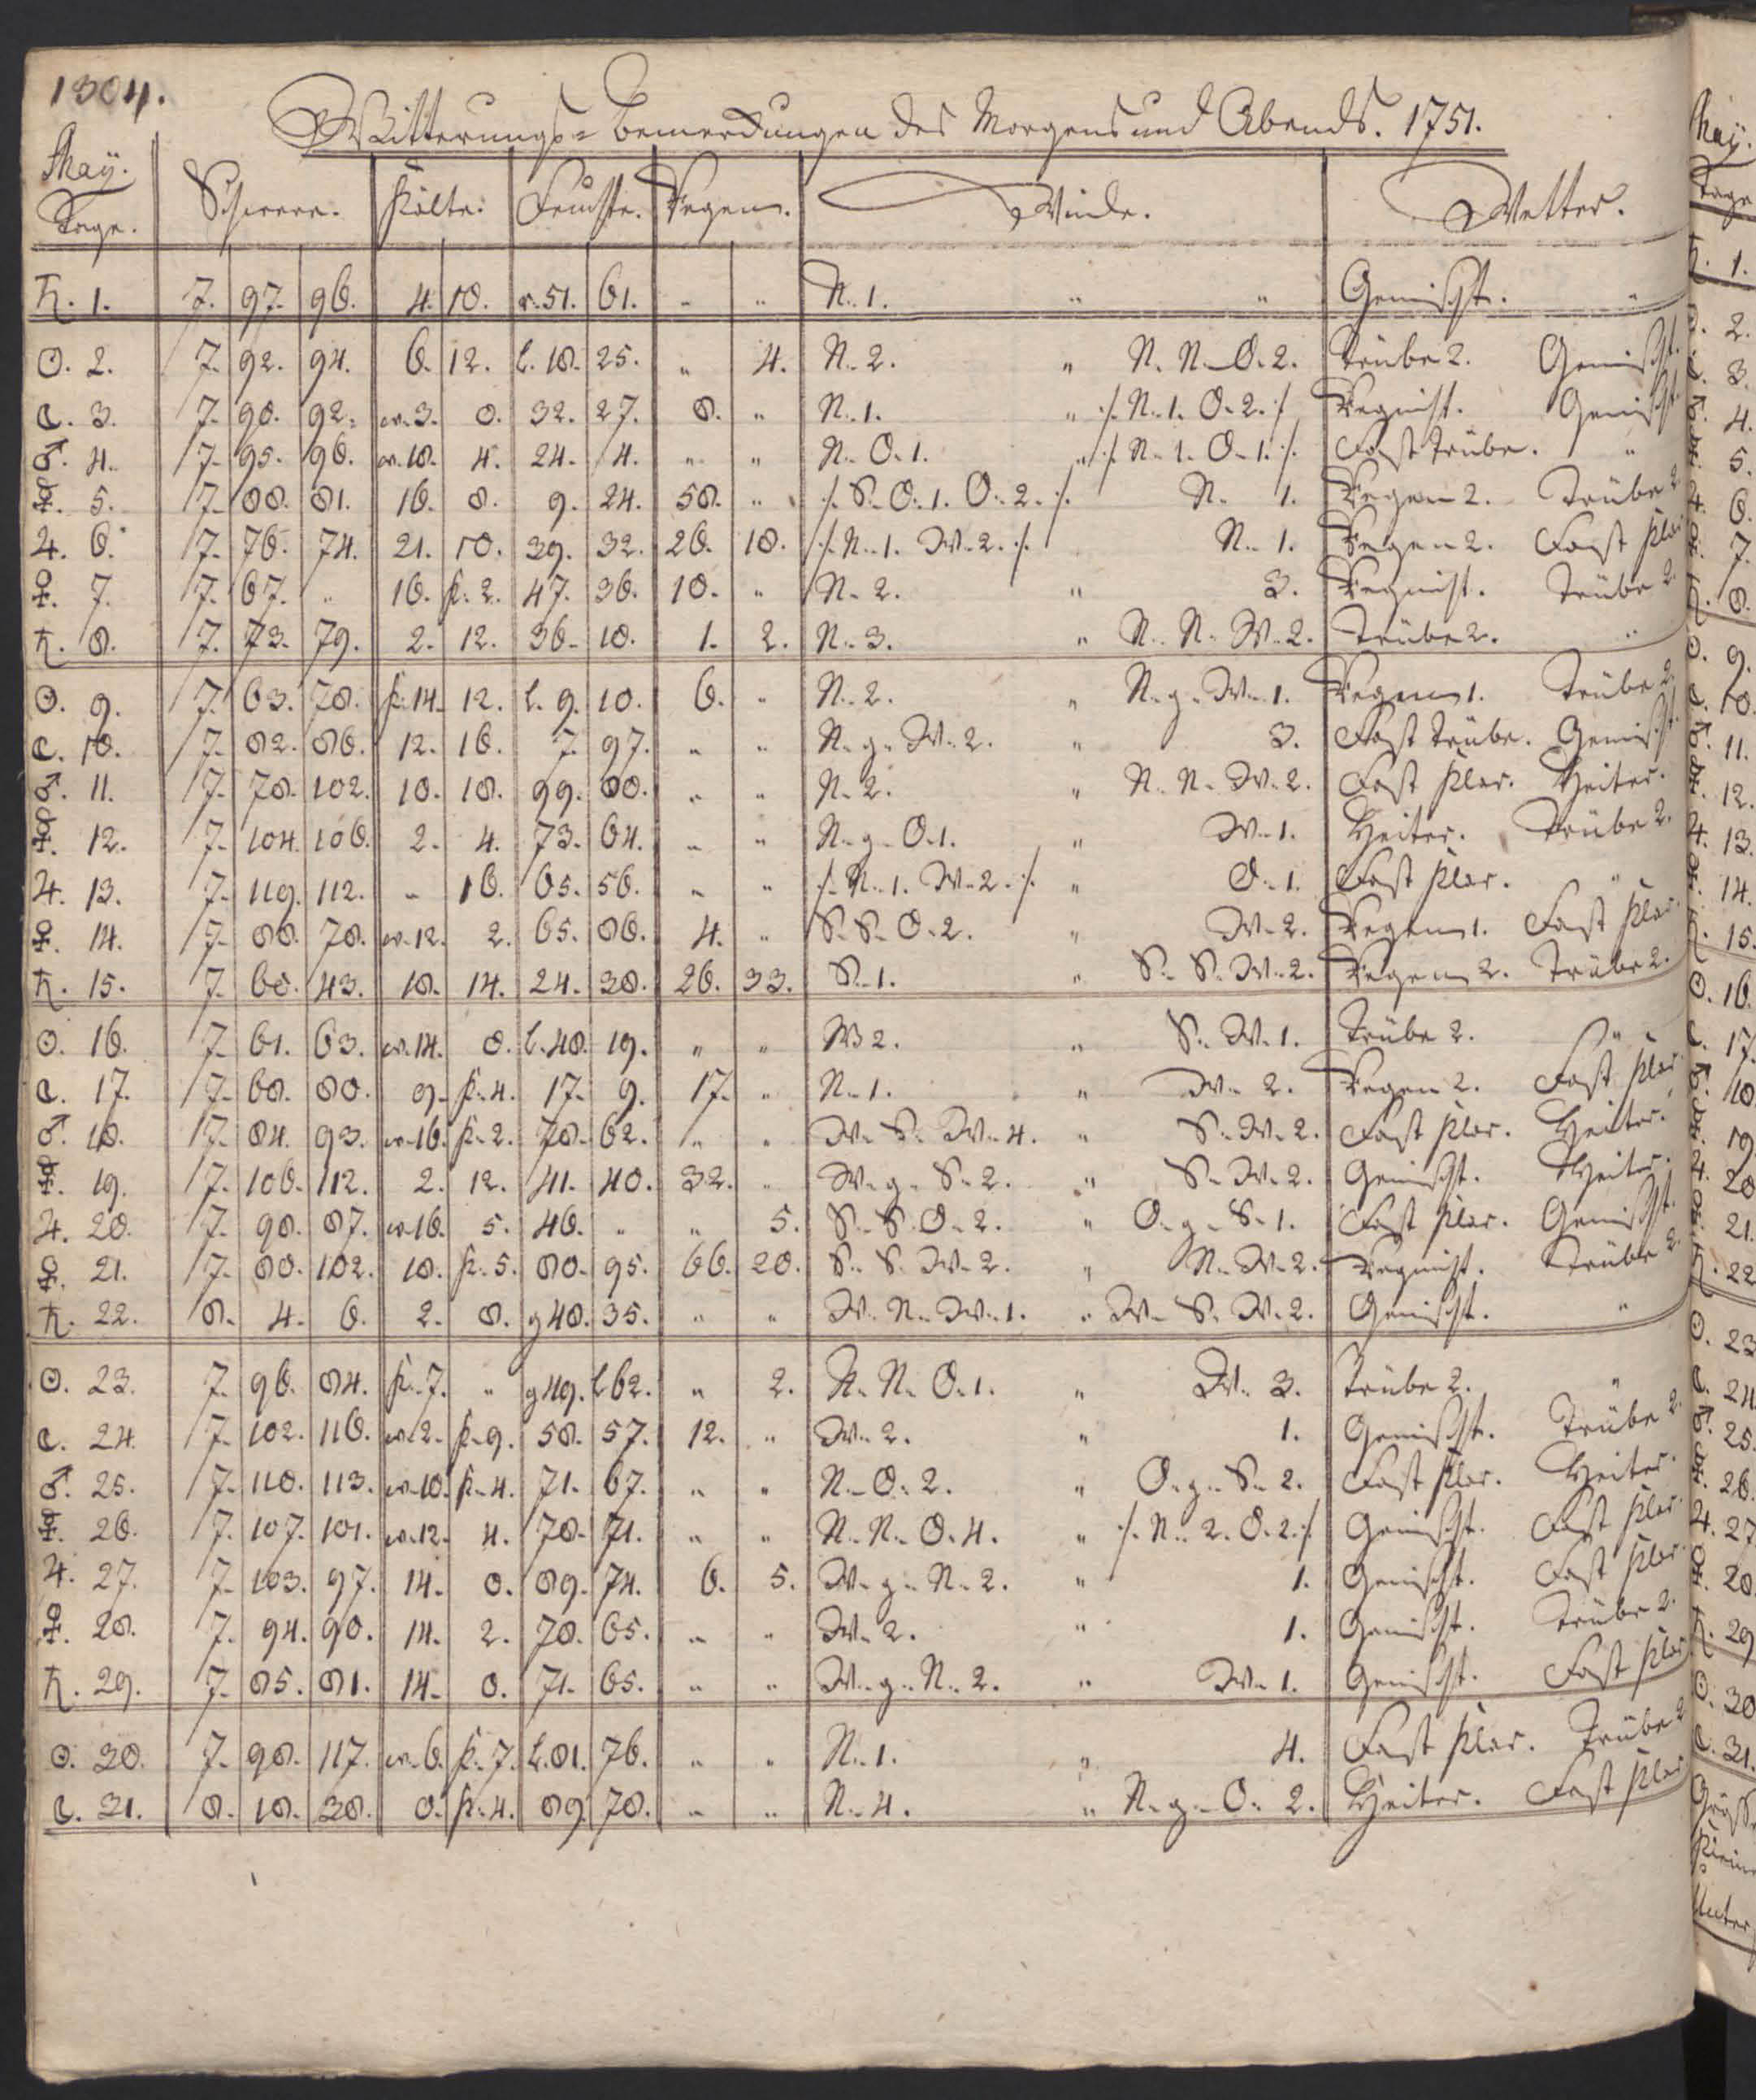 1304.
Witterungs= Bemerckungen des Morgens und Abends. 1751.
May.
Tage. Schwere. Kälte. Feuchte. Regen. Winde. Wetter.
♄. 1. 7. 97. 96. 4. 10. 51. 61. " " N. 1. " " Gemischt. "
☉. 2. 7. 92. 94. 6. 12. l. 18. 25. " 4. N. 2. " N. N. O. 2. Trübe 2. Gemischt.
☾. 3. 7. 90. 92. w. 3. 0. 32. 27. 8. " N. 1. " ·/. N. 1. O. 2. ·/. Regnist. Gemischt.
♂. 4. 7. 95. 96. w. 18. 4. 24. 4. " " N. O. 1. " ·/. N. 1. O. 1. ·/. Fast trübe. "
☿. 5. 7. 88. 81. 16. 8. 9. 24. 58. " ·/. S. O. 1. O. 2. ·/. N. 1. Regen 2. Trübe 2.
♃. 6. 7. 76. 74. 21. 10. 39. 32. 26. 18. ·/. N. 1. W. 2. ·/. N. 1. Regen 2. Fast klar
♀. 7. 7. 67. " 16. k. 2. 47. 36. 10. " N. 2. " 3. Regnist. Trübe 2.
♄. 8. 7. 73. 79. 2. 12. 36. 18. 1. 2. N. 3. " N. N. W. 2. Trübe 2. "
☉. 9. 7. 63. 78. k. 14. 12. l. 9. 10. 6. " N. 2. " N. g. W. 1. Regen 1. Trübe 2.
☾. 10. 7. 82. 86. 12. 16. 7. 97. " " N. g. W. 2. " 3. Fast trübe. Gemischt.
♂. 11. 7. 78. 102. 10. 18. 99. 80. " " N. 2. " N. N. W. 2. Fast klar. Heiter.
☿. 12. 7. 104. 106. 2. 4. 73. 64. " " N. g. O. 1. " W. 1. Heiter. Trübe 2.
♃. 13. 7. 119. 112. " 16. 65. 56. " " ·/. N. 1. W. 2. ·/. " O. 1. Fast klar. "
♀. 14. 7. 88. 78. w. 12. 2. 65. 86. 4. " S. S. O. 2. " W. 2. Regen 1. Fast klar.
♄. 15. 7. 60. 43. 18. 14. 24. 38. 26. 33. S. 1. " S. S. W. 2. Regen 2. Trübe 2.
☉. 16. 7. 61. 63. w. 14. 0. l. 48. 19. " " W 2. " S. W. 1. Trübe 2. "
☾. 17. 7. 68. 80. 9. k. 4. 17. 9. 17. " N. 1. " W. 2. Regen 2. Fast klar
♂. 18. 7. 84. 93. w. 16. k. 2. 78. 62. " " W. S. W. 4. " S. W. 2. Fast klar. Heiter.
☿. 19. 7. 106. 112. 2. 12. 41. 40. 32. " W. g. S. 2. " S. W. 2. Gemischt. Heiter.
♃. 20. 7. 98. 87. w. 16. 5. 46. " " 5. S. S. O. 2. " O. g. S. 1. Fast klar. Gemischt.
♀. 21. 7. 80. 102. 18. k. 5. 80. 95. 66. 20. S. S. W. 2. " N. W. 2. Regnist. Trübe 2.
♄. 22. 8. 4. 6. 2. 8. g 48. 35. " " W. N. W. 1. " W. S. W. 2. Gemischt. "
☉. 23. 7. 96. 84. k. 7. " g 49. l 62. " 2. N. N. O. 1. " W. 3. Trübe 2. "
☾. 24. 7. 102. 116. w. 2. k. 9. 58. 57. 12. " W. 2. " 1. Gemischt. Trübe 2.
♂. 25. 7. 110. 113. w. 10. k. 4. 71. 67. " " N. O. 2. " O. g. S. 2. Fast klar. Heiter.
☿. 26. 7. 107. 101. w. 12. 4. 78. 71. " " N. N. O. 4. " ·/. N. 2. O. 2. ·/. Gemischt. Fast klar.
♃. 27. 7. 103. 97. 14. 0. 89. 74. 6. 5. W. g. N. 2. " 1. Gemischt. Fast klar.
♀. 28. 7. 94. 90. 14. 2. 78. 65. " " W. 2. " 1. Gemischt. Trübe 2.
♄. 29. 7. 85. 81. 14. 0. 71. 65. " " W. g. N. 2. " W. 1. Gemischt. Fast klar
☉. 30. 7. 98. 117. w. 6. k. 7. l. 81. 76. " " N. 1. " 4. Fast klar. Trübe 2
☾. 31. 8. 18. 38. 0. k. 4. 89. 78. " " N. 4. " N. g. O. 2. Heiter. Fast klar
May.
Tage
♄. 1.
☉. 2.
☾. 3.
♂. 4.
☿. 5.
♃. 6.
♀. 7.
♄. 8.
☉. 9.
☾. 10.
♂. 11.
☿. 12.
♃. 13.
♀. 14.
♄. 15.
☉. 16.
☾. 17.
♂. 18
☿. 19.
♃. 20
♀. 21.
♄. 22
☉. 23
☾. 24
♂. 25.
☿. 26.
♃. 27
♀. 28
♄. 29
☉. 30
☾. 31.